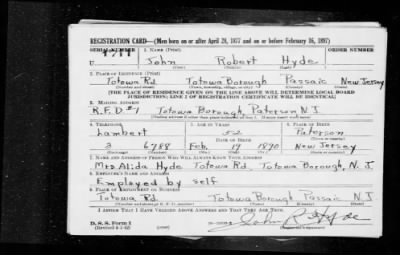 REGISTRATION CARD—(Men born on or after April 28, 1877 and on or before February 16, 1897)
SERIAL NUMBER 1. NAME (Print) ORDER NUMBER
U John Robert Hyde
2. PLACE OF RESIDENCE (Print)
Totowa Rd. Totowa Borough Passaic New Jersey
[THE PLACE OF RESIDENCE GIVEN ON THE LINE ABOVE WILL DETERMINE LOCAL BOARD
JURISDICTION; LINE 2 OF REGISTRATION CERTIFICATE WILL BE IDENTICAL]
3. MAILING ADDRESS
R.F.D #1 Totowa Borough, Paterson N.J.
4. TELEPHONE 5. AGE IN YEARS 6. PLACE OF BIRTH
Lambert 52 Paterson
DATE OF BIRTH
2 6788 Feb. 19 1890 New Jersey
7. NAME AND ADDRESS OF PERSON WHO WILL ALWAYS KNOW YOUR ADDRESS
Mrs Alida Hyde Totowa Rd. Totowa Borough, N.J.
8. EMPLOYER'S NAME AND ADDRESS
Employed by self
9. PLACE OF EMPLOYMENT OR BUSINESS
Totowa Rd. Totowa Borough Passaic N.J.
I AFFIRM THAT I HAVE VERIFIED ABOVE ANSWERS AND THAT THEY ARE TRUE.
D. S. S. Form 1
John R Hyde